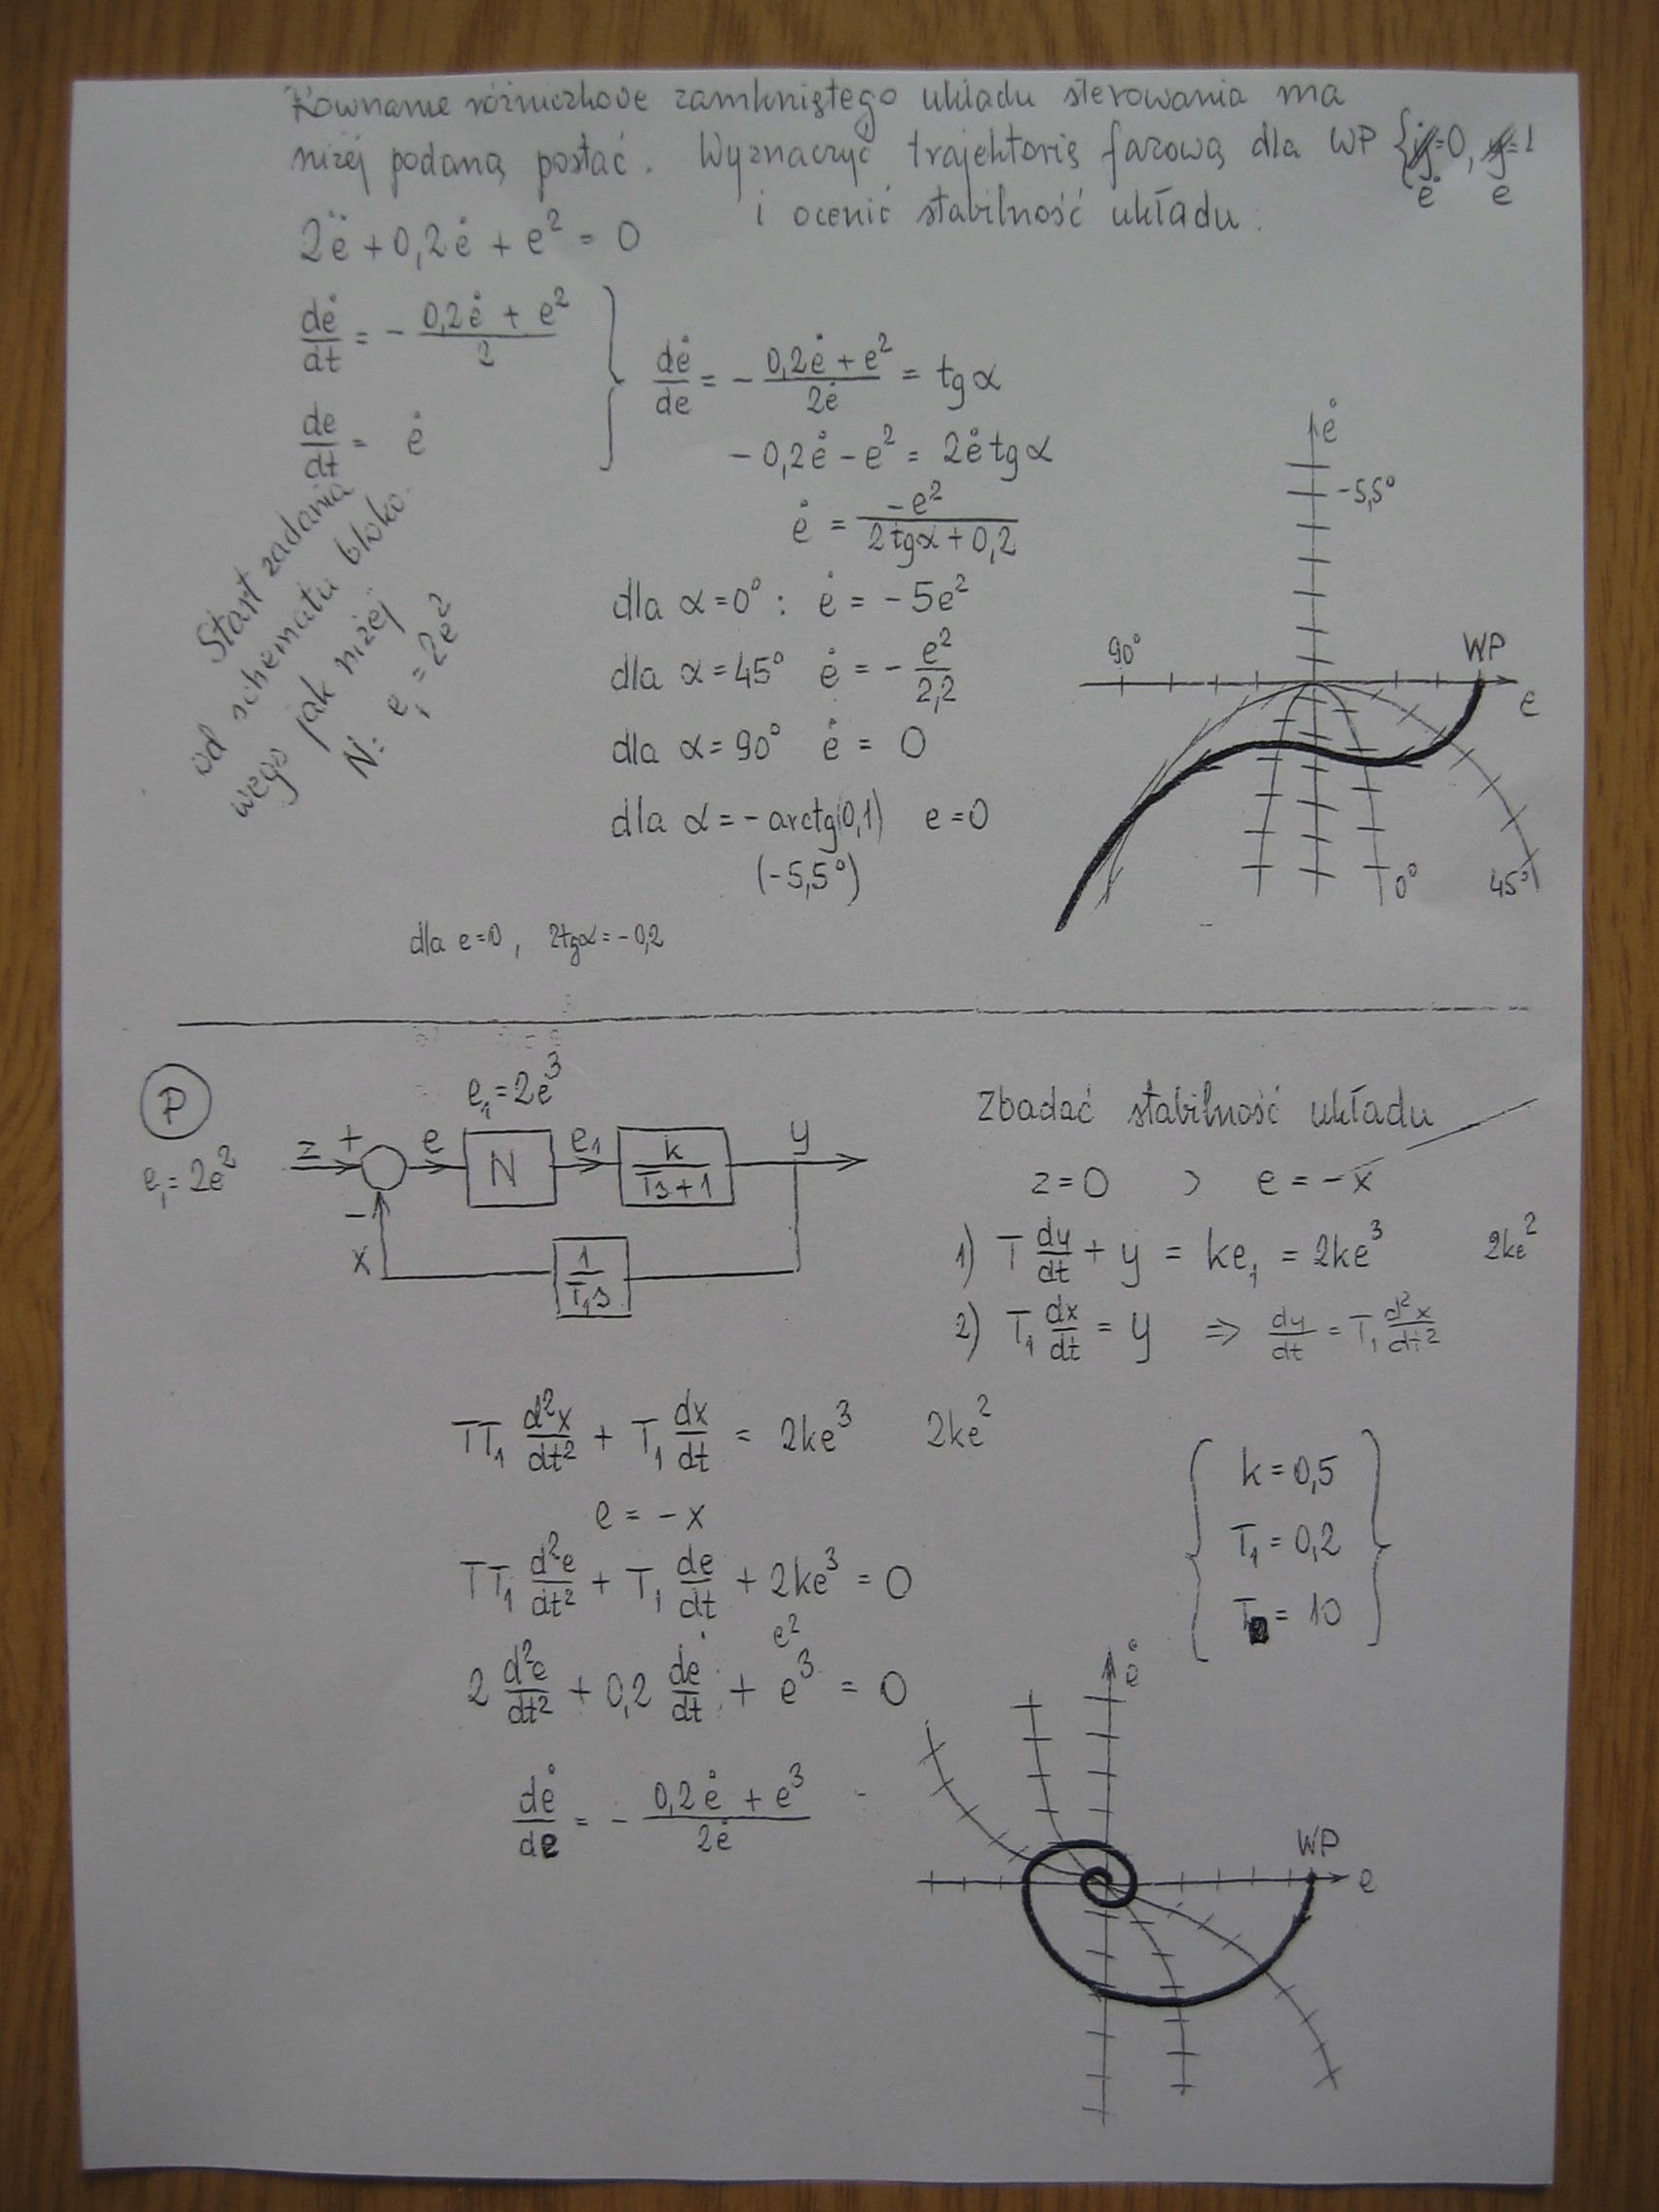 Równanie różniczkowe zamkniętego układu sterowania ma
niżej podaną postać. Wyznaczyć trajektorię fazową dla WP {ẏ=0, y=1
ė e
i ocenić stabilność układu.
2ë + 0,2ė + e² = 0
dė/dt = - (0,2ė + e²)/2
de/dt = ė
dė/de = - (0,2ė + e²)/2ė = tg α
- 0,2ė - e² = 2ė tg α
ė = -e²/(2tgα + 0,2)
dla α = 0° : ė = - 5e²
dla α = 45° ė = - e²/2,2
dla α = 90° ė = 0
dla α = - arctg(0,1) e = 0
(-5,5°)
dla e=0 , 2tgα = -0,2
Start zadania
od schematu bloko
wego jak niżej
N: e₁ = 2e²
ė
-5,5°
90°
WP
e
0°
45°
P
e₁ = 2e²
e₁ = 2e³
z + e N e₁ k/(Ts+1) y
-
x
1/T₁s
Zbadać stabilność układu
z = 0 > e = -x
1) T dy/dt + y = ke₁ = 2ke³ 2ke²
2) T₁ dx/dt = y ⇒ dy/dt = T₁ d²x/dt²
TT₁ d²x/dt² + T₁ dx/dt = 2ke³ 2ke²
e = - x
TT₁ d²e/dt² + T₁ de/dt + 2ke³ = 0
e²
2 d²e/dt² + 0,2 de/dt + e³ = 0
dė/de = - (0,2ė + e³)/2ė
k = 0,5
T₁ = 0,2
T = 10
ė
WP
e